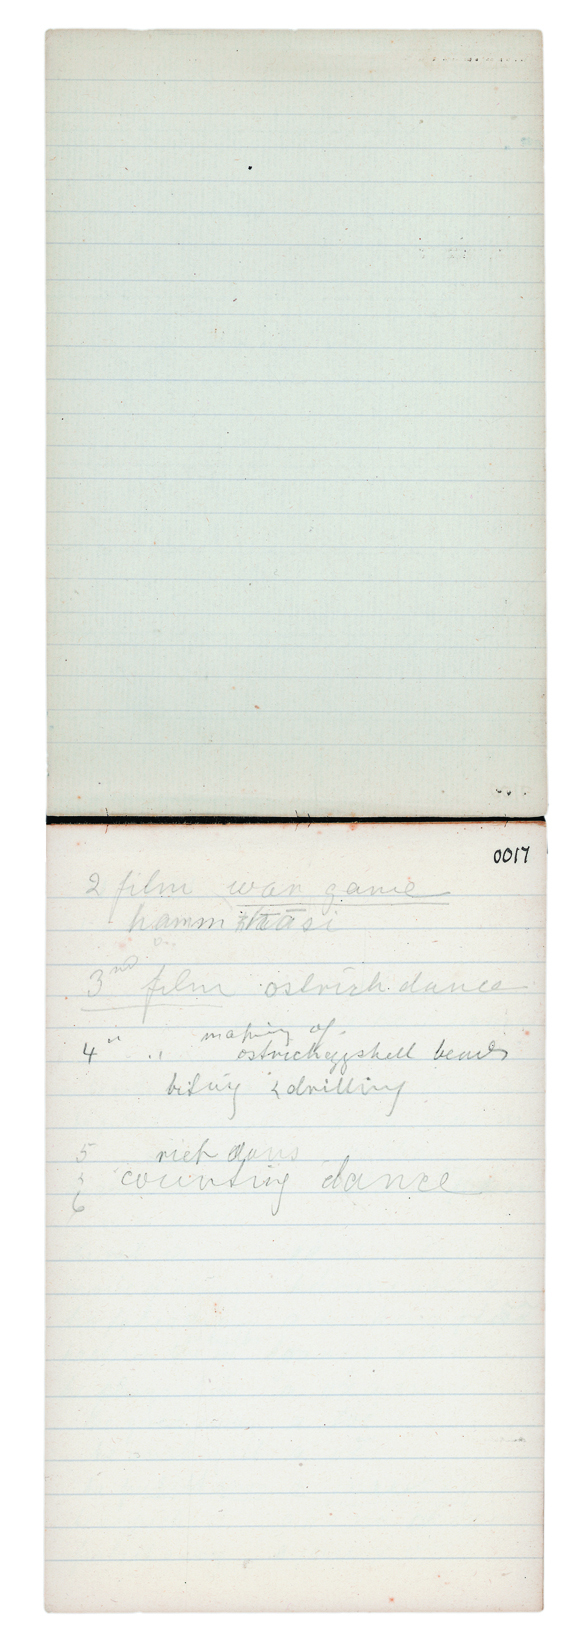 0017
2 film war game
hamm
3rd film ostrich dance
4" " making of
ostricheggshell beads
biting & drilling
5
counting dance
6